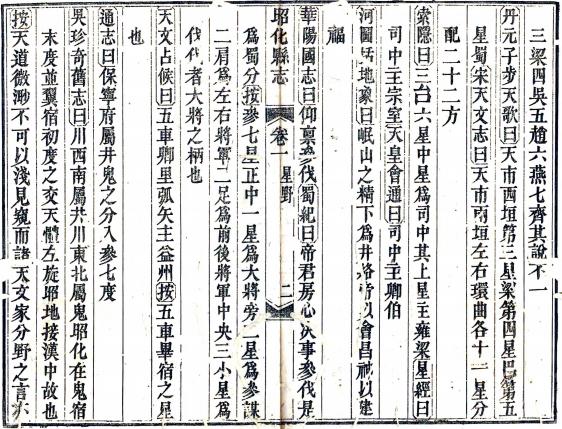 三梁四吳五趙六燕七齊其說不一
丹元子步天歌曰天市西垣第三星梁第四星巴第五
星蜀宋天文志曰天市兩垣左右環曲各十一星分
配二十二方
索隱曰三台六星中星爲司中其上星主雍梁星經曰
司中主宗室天皇會通曰司中主卿伯
河圖括地象曰岷山之精下爲井絡帝以會昌神以建
福
昭化縣志 卷一 星野 二
華陽國志曰仰稟參伐蜀紀曰帝君房心決事參伐是
爲蜀分按參七星正中一星爲大將旁一星爲參謀
二肩爲左右將軍二足爲前後將軍中央三小星爲
伐伐者大將之柄也
天文占候曰五車卿星弧矢主益州按五車畢宿之星
也
通志曰保寧府屬井鬼之分入參七度
吳珍奇舊志曰川西南屬井川東北屬鬼昭化在鬼宿
末度並翼宿初度之交天體左旋昭地接漢中故也
按天道微渺不可以淺見窺而諸天文家分野之言亦